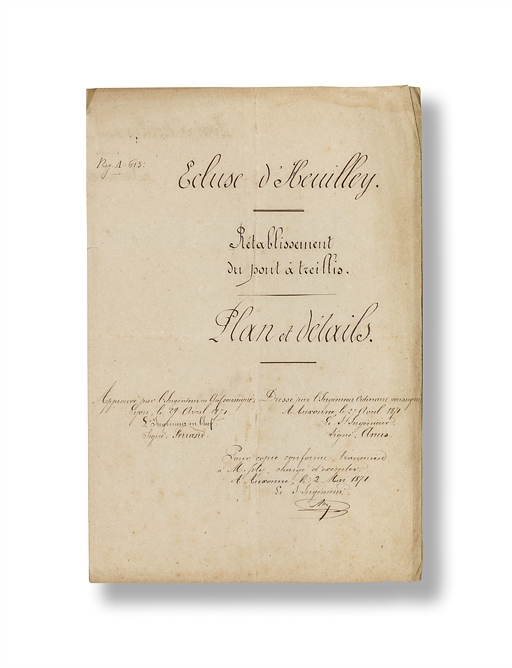 Reg. A. 613.
Ecluse d'Heuilley.
Rétablissement
du pont à treillis.
Plan et détails.
Approuvé par l'Ingénieur en Chef
Lyon, le 29 Avril 1871
L'Ingénieur en Chef
Signé:
Dressé par l'Ingénieur Ordinaire
A Auxonne, le 27 Avril 1871
Le S. Ingénieur
Signé:
Pour copie conforme, transmise
à M. Joly, chargé d'exécuter.
A Auxonne, le 2 Mai 1871
Le S. Ingénieur